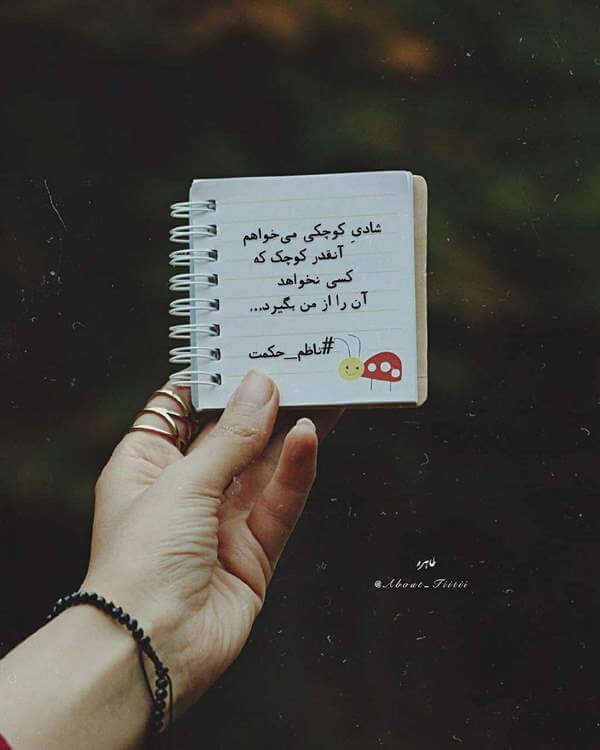 شادیِ کوچکی می‌خواهم
آنقدر کوچک که
کسی نخواهد
آن را از من بگیرد...
#ناظم_حکمت
طاهره
@About_Tiitii